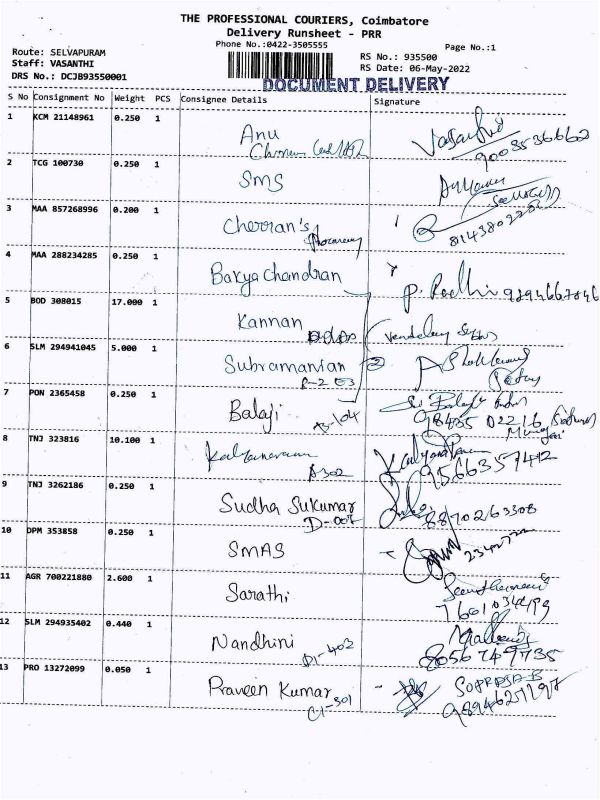 THE PROFESSIONAL COURIERS, Coimbatore
Delivery Runsheet - PRR
Phone No.:0422-3505555
Page No.:1
Route: SELVAPURAM
Staff: VASANTHI
DRS No.: DCJB93550001
RS No.: 935500
RS Date: 06-May-2022
DOCUMENT DELIVERY
S No Consignment No Weight PCS Consignee Details Signature
1 KCM 21148961 0.250 1 Anu
9003536662
2 TCG 100730 0.250 1 SMS
3 MAA 857268996 0.200 1 Cherran's
4 MAA 288234285 0.250 1 Bakya Chandran
5 BOD 308015 17.000 1 Kannan
6 SLM 294941045 5.000 1 Subramanian
7 PON 2365458 0.250 1 Balaji A-104
98435 02216
8 TNJ 323816 10.100 1 Kalyanaraman Kalyanaraman
A-302 9566357412
9 TNJ 3262186 0.250 1 Sudha Sukumar
D-007 8870263308
10 DPM 353858 0.250 1 SMAS
11 AGR 700221880 2.600 1 Sarathi
7601034499
12 SLM 294935402 0.440 1 Nandhini
D1-402 8056749735
13 PRO 13272099 0.050 1 Praveen Kumar
C1-301 98946271297